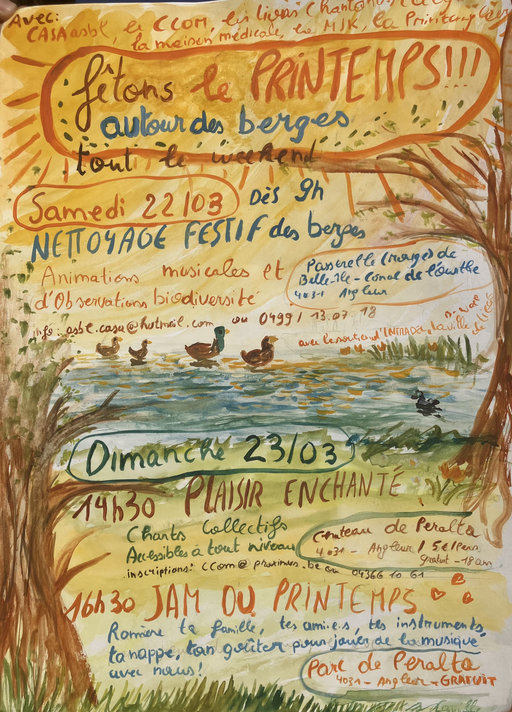 Avec:
CASA asbl, le CCOM, les livres Chantonnants
la maison médicale, la MJK, la
fêtons le PRINTEMPS!!!
autour des berges
tout le weekend
Samedi 22/03 Dès 9h
NETTOYAGE FESTIF des berges
Passerelle (rouge) de
Belle-île - Canal de l'Ourthe
4031 Angleur
Animations musicales et
d'Observations biodiversité
info: asbl.casa@hotmail.com ou 0499/ 13.07.18
avec le soutien d'INTRADEL, la ville de Liège
Dimanche 23/03
14h30 PLAISIR ENCHANTÉ
Chants Collectifs
Accessibles à tout niveau
Château de Peralta
4031 - Angleur / 5€/Pers.
gratuit - 18 ans
inscriptions: ccom@proximus.be ou 04366 10 61
16h30 JAM DU PRINTEMPS
Ramène ta famille, tes ami.e.s, tes instruments,
ta nappe, ton goûter pour jouer de la musique
avec nous!
Parc de Peralta
4031 - Angleur - GRATUIT